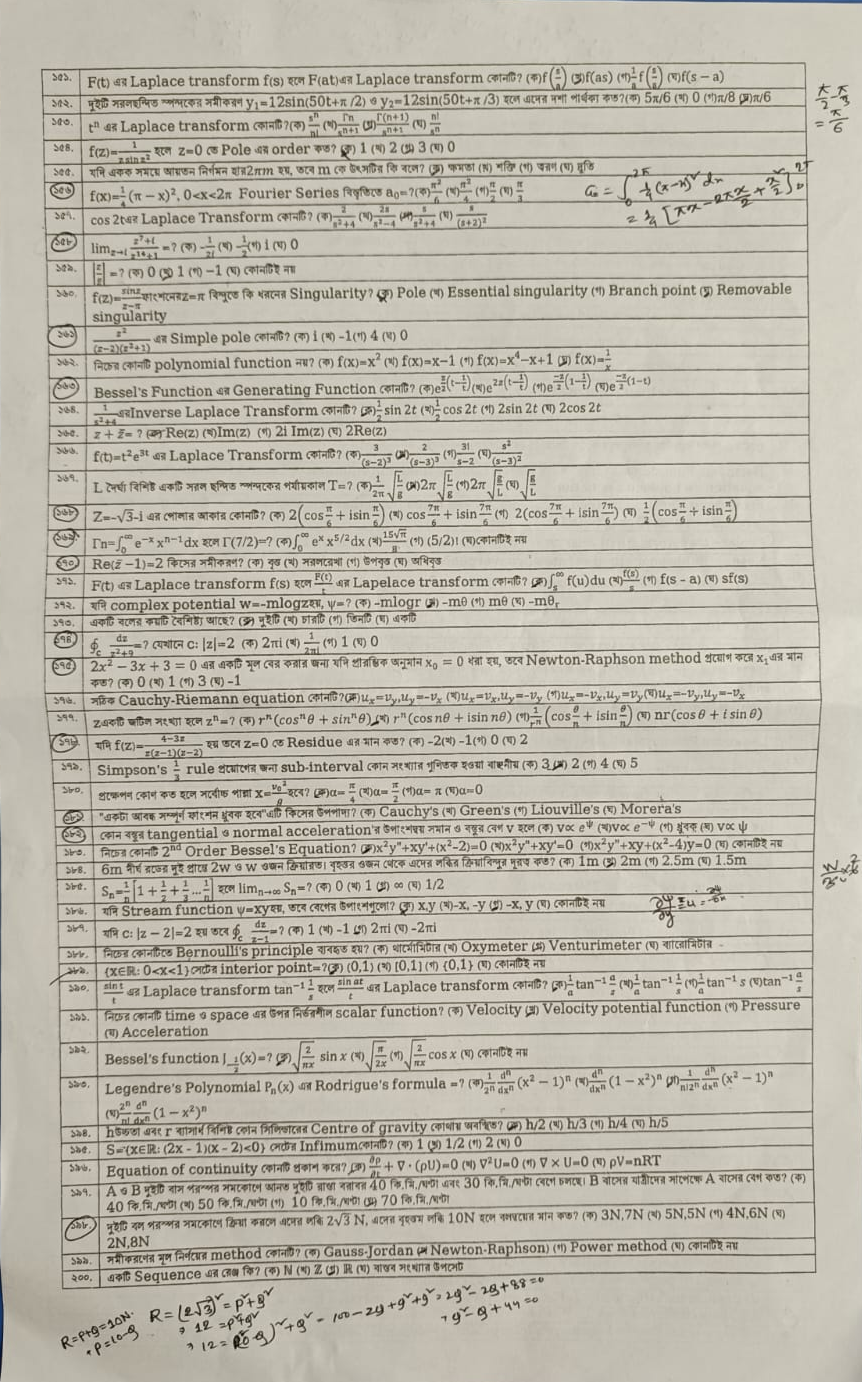 ১৫১. F(t) এর Laplace transform f(s) হলে F(at)এর Laplace transform কোনটি? (ক)f(s/a) (খ)f(as) (গ)1/a f(s/a) (ঘ)f(s – a)
১৫২. দুইটি সরলছন্দিত স্পন্দকের সমীকরণ y₁=12sin(50t+π /2) ও y₂=12sin(50t+π /3) হলে এদের দশা পার্থক্য কত?(ক) 5π/6 (খ) 0 (গ)π/8 (ঘ)π/6
π/2 - π/3
= π/6
১৫৩. tⁿ এর Laplace transform কোনটি?(ক) sⁿ/n! (খ) Γn/sⁿ⁺¹ (গ) Γ(n+1)/sⁿ⁺¹ (ঘ) n!/sⁿ
১৫৪. f(z)=1/(z sin z²) হলে z=0 তে Pole এর order কত? (ক) 1 (খ) 2 (গ) 3 (ঘ) 0
১৫৫. যদি একক সময়ে আয়তন নির্গমন হার2πm হয়, তবে m কে উৎসটির কি বলে? (ক) ক্ষমতা (খ) শক্তি (গ) ত্বরণ (ঘ) দ্রুতি
১৫৬ f(x)=1/4(π – x)², 0<x<2π Fourier Series বিস্তৃতিতে a₀=?(ক)π²/6 (খ)π²/4 (গ)π/2 (ঘ)π/3
১৫৭. cos 2tএর Laplace Transform কোনটি? (ক) 2/(s²+4) (খ) 2s/(s²–4) (গ) s/(s²+4) (ঘ) s/(s+2)²
১৫৮ lim z→i (z⁷+i)/(z¹⁴+1) =? (ক) -1/2i (খ) -1/2(গ) i (ঘ) 0
১৫৯. =? (ক) 0 (খ) 1 (গ) –1 (ঘ) কোনটিই নয়
১৬০. f(z)=sinz/(z–π) ফাংশনেরz=π বিন্দুতে কি ধরনের Singularity? (ক) Pole (খ) Essential singularity (গ) Branch point (ঘ) Removable
singularity
১৬১ z²/((z–2)(z²+1)) এর Simple pole কোনটি? (ক) i (খ) -1(গ) 4 (ঘ) 0
১৬২. নিচের কোনটি polynomial function নয়? (ক) f(x)=x² (খ) f(x)=x–1 (গ) f(x)=x⁴–x+1 (ঘ) f(x)=1/x
১৬৩ Bessel's Function এর Generating Function কোনটি?
১৬৪. 1/(s²+4) এরInverse Laplace Transform কোনটি? (ক)1/2 sin 2t (খ)1/2 cos 2t (গ) 2sin 2t (ঘ) 2cos 2t
১৬৫. z + z̄= ? (ক) Re(z) (খ)Im(z) (গ) 2i Im(z) (ঘ) 2Re(z)
১৬৬. f(t)=t²e³ᵗ এর Laplace Transform কোনটি? (ক) 3/(s–2)³ (খ) 2/(s–3)³ (গ) 3!/(s–2) (ঘ) s²/(s–3)²
১৬৭. L দৈর্ঘ্য বিশিষ্ট একটি সরল ছন্দিত স্পন্দকের পর্যায়কাল T=? (ক) 1/2π √(L/g) (খ)2π √(L/g) (গ)2π √(g/L) (ঘ) √(g/L)
১৬৮ Z=–√3-i এর পোলার আকার কোনটি? (ক) 2(cos π/6 + isin π/6) (খ) cos 7π/6 + isin 7π/6 (গ) 2(cos 7π/6 + isin 7π/6) (ঘ) 1/2(cos π/6 + isin π/6)
১৬৯ Γn=∫₀^∞ e⁻ˣ xⁿ⁻¹dx হলে Γ(7/2)=? (ক)∫₀^∞ eˣ x^5/2 dx (খ)15√π/8 (গ) (5/2)! (ঘ)কোনটিই নয়
১৭০ Re(z̄ –1)=2 কিসের সমীকরণ? (ক) বৃত্ত (খ) সরলরেখা (গ) উপবৃত্ত (ঘ) অধিবৃত্ত
১৭১. F(t) এর Laplace transform f(s) হলে F(t)/t এর Lapelace transform কোনটি? (ক)∫ₛ^∞ f(u)du (খ)f(s)/s (গ) f(s – a) (ঘ) sf(s)
১৭২. যদি complex potential w=–mlogzহয়, ψ=? (ক) -mlogr (খ) -mθ (গ) mθ (ঘ) -mθᵣ
১৭৩. একটি বলের কয়টি বৈশিষ্ট্য আছে? (ক) দুইটি (খ) চারটি (গ) তিনটি (ঘ) একটি
১৭৪ ∮c dz/(z²+9)=? যেখানে c: |z|=2 (ক) 2πi (খ) 1/2πi (গ) 1 (ঘ) 0
১৭৫ 2x² – 3x + 3 = 0 এর একটি মূল বের করার জন্য যদি প্রারম্ভিক অনুমান x₀ = 0 ধরা হয়, তবে Newton-Raphson method প্রয়োগ করে x₁এর মান
কত? (ক) 0 (খ) 1 (গ) 3 (ঘ) -1
১৭৬. সঠিক Cauchy-Riemann equation কোনটি?(ক)uₓ=v_y,u_y=–vₓ (খ)uₓ=vₓ,u_y=–v_y (গ)uₓ=–vₓ,u_y=v_y(ঘ)uₓ=–v_y,u_y=–vₓ
১৭৭. zএকটি জটিল সংখ্যা হলে zⁿ=? (ক) rⁿ(cosⁿθ + sinⁿθ) (খ) rⁿ(cos nθ + isin nθ) (গ)1/rⁿ (cos θ/n + isin θ/n) (ঘ) nr(cosθ + i sinθ)
১৭৮ যদি f(z)=(4–3z)/(z(z–1)(z–2)) হয় তবে z=0 তে Residue এর মান কত? (ক) -2(খ) -1(গ) 0 (ঘ) 2
১৭৯. Simpson's 1/3 rule প্রয়োগের জন্য sub-interval কোন সংখ্যার গুণিতক হওয়া বাঞ্ছনীয় (ক) 3 (খ) 2 (গ) 4 (ঘ) 5
১৮০. প্রক্ষেপণ কোণ কত হলে সর্বোচ্চ পাল্লা x=v₀²/g হবে? (ক)α= π/4 (খ)α= π/2 (গ)α= π (ঘ)α=0
১৮১ "একটা আবদ্ধ সম্পূর্ণ ফাংশন ধ্রুবক হবে"এটি কিসের উপপাদ্য? (ক) Cauchy's (খ) Green's (গ) Liouville's (ঘ) Morera's
১৮২ কোন বস্তুর tangential ও normal acceleration'র উপাংশদ্বয় সমান ও বস্তুর বেগ v হলে (ক) v∝ e^ψ (খ)v∝ e^–ψ (গ) ধ্রুবক (ঘ) v∝ ψ
১৮৩. নিচের কোনটি 2ⁿᵈ Order Bessel's Equation? (ক)x²y"+xy'+(x²–2)=0 (খ)x²y"+xy'=0 (গ)x²y"+xy+(x²–4)y=0 (ঘ) কোনটিই নয়
১৮৪. 6m দীর্ঘ রডের দুই প্রান্তে 2w ও w ওজন ক্রিয়ারত। বৃহত্তর ওজন থেকে এদের লব্ধির ক্রিয়াবিন্দুর দূরত্ব কত? (ক) 1m (খ) 2m (গ) 2.5m (ঘ) 1.5m
১৮৫. Sₙ=1/n[1 + 1/2 + 1/3 ... 1/n] হলে lim n→∞ Sₙ=? (ক) 0 (খ) 1 (গ) ∞ (ঘ) 1/2
১৮৬. যদি Stream function ψ=xyহয়, তবে বেগের উপাংশগুলো? (ক) x,y (খ)-x, -y (গ) -x, y (ঘ) কোনটিই নয়
১৮৭. যদি c: |z – 2|=2 হয় তবে ∮c dz/(z–1)=? (ক) 1 (খ) -1 (গ) 2πi (ঘ) -2πi
১৮৮. নিচের কোনটিতে Bernoulli's principle ব্যবহৃত হয়? (ক) থার্মোমিটার (খ) Oxymeter (গ) Venturimeter (ঘ) ব্যারোমিটার
১৮৯. {x∈ℝ: 0<x<1} সেটের interior point=?(ক) (0,1) (খ) [0,1] (গ) {0,1} (ঘ) কোনটিই নয়
১৯০. sin t/t এর Laplace transform tan⁻¹ 1/s হলে sin at/t এর Laplace transform কোনটি? (ক)1/a tan⁻¹ a/s (খ)1/a tan⁻¹ 1/s (গ)1/a tan⁻¹ s (ঘ)tan⁻¹ a/s
১৯১. নিচের কোনটি time ও space এর উপর নির্ভরশীল scalar function? (ক) Velocity (খ) Velocity potential function (গ) Pressure
(ঘ) Acceleration
১৯২. Bessel's function J₋½(x)=? (ক)√(2/πx) sin x (খ)√(π/2x) (গ)√(2/πx) cos x (ঘ) কোনটিই নয়
১৯৩. Legendre's Polynomial Pₙ(x) এর Rodrigue's formula =? (ক)1/2ⁿ dⁿ/dxⁿ (x² – 1)ⁿ (খ) dⁿ/dxⁿ (1 – x²)ⁿ (গ)1/(n!2ⁿ) dⁿ/dxⁿ (x² – 1)ⁿ
(ঘ)2ⁿ/n! dⁿ/dxⁿ (1 – x²)ⁿ
১৯৪. hউচ্চতা এবং r ব্যাসার্ধ বিশিষ্ট কোন সিলিন্ডারের Centre of gravity কোথায় অবস্থিত? (ক) h/2 (খ) h/3 (গ) h/4 (ঘ) h/5
১৯৫. S={x∈ℝ: (2x – 1)(x – 2)<0} সেটের Infimumকোনটি? (ক) 1 (খ) 1/2 (গ) 2 (ঘ) 0
১৯৬. Equation of continuity কোনটি প্রকাশ করে? (ক) ∂ρ/∂t + ∇ · (ρU)=0 (খ) ∇²U=0 (গ) ∇ × U=0 (ঘ) ρV=nRT
১৯৭. A ও B দুইটি বাস পরস্পর সমকোণে আনত দুইটি রাস্তা বরাবর 40 কি.মি./ঘণ্টা এবং 30 কি.মি./ঘণ্টা বেগে চলছে। B বাসের যাত্রীদের সাপেক্ষে A বাসের বেগ কত? (ক)
40 কি.মি./ঘণ্টা (খ) 50 কি.মি./ঘণ্টা (গ) 10 কি.মি./ঘণ্টা (ঘ) 70 কি.মি./ঘণ্টা
১৯৮. দুইটি বল পরস্পর সমকোণে ক্রিয়া করলে এদের লব্ধি 2√3 N, এদের বৃহত্তম লব্ধি 10N হলে বলদ্বয়ের মান কত? (ক) 3N,7N (খ) 5N,5N (গ) 4N,6N (ঘ)
2N,8N
১৯৯. সমীকরণের মূল নির্ণয়ের method কোনটি? (ক) Gauss-Jordan (খ) Newton-Raphson) (গ) Power method (ঘ) কোনটিই নয়
২০০. একটি Sequence এর রেঞ্জ কি? (ক) ℕ (খ) ℤ (গ) ℝ (ঘ) বাস্তব সংখ্যার উপসেট
R=P+Q=10N
P=10-Q
R=(2√3)²=P²+Q²
12 =P²+Q²